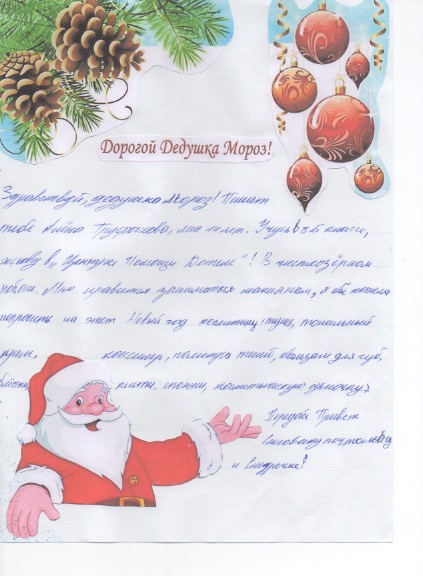 Дорогой Дедушка Мороз!
Здравствуй, дедушка Мороз! Пишет
тебе Алёна мне 11 лет. Учусь в 5 классе,
живу в „Центре Помощи Детям"! В чистоозёрном
районе. Мне нравится заниматься макияжем, я бы хотела
попросить на этот Новый год косметику: тушь, тональный
крем, консилер, палитра теней, для губ,
блёстки, кисти, спонжи, косметическую
Передай Привет
Снеговику почтовику
и Снегурочке!